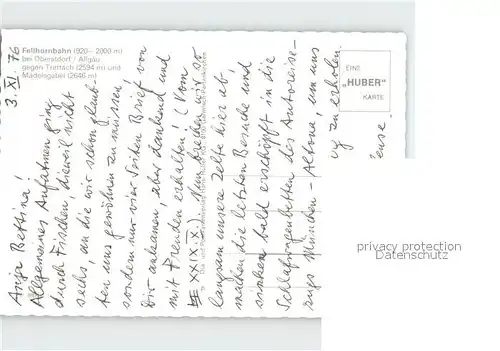 Fellhornbahn (920 – 2000 m)
bei Oberstdorf / Allgäu
gegen Trettach (2594 m) und
Mädelegabel (2646 m)
EINE
„HUBER"
KARTE
3. XI. 76
Anja Bettina!
Allgemeines Aufatmen ging
durch Tischen, dieweil nicht
sechs, an die wir schon glaub-
ten uns gewöhnen zu müssen,
sondern nur vier Seiten Brief von
Dir ankamen, aber dankend und
mit Freuden erhalten! (Vom
XXIX. X.) Nun brechen wir so
langsam unsere Zelte hier ab
machen die letzten Besuche und
sinken bald erschöpft in die
Schlafwagenbetten des Autoreise-
zugs München - Altona, um uns
zu erholen.
privacy protection
OVERLAY